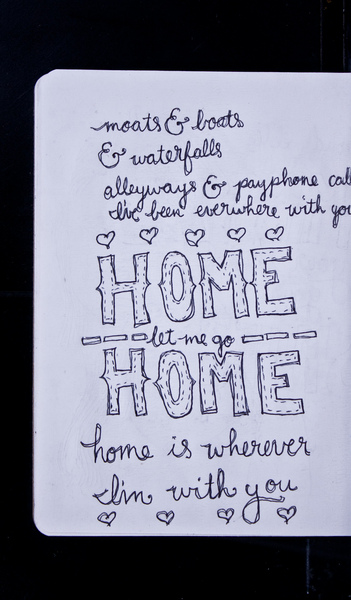 moats & boats
& waterfalls
alleyways & payphone call
I've been everwhere with you
HOME
let me go
HOME
home is wherever
I'm with you